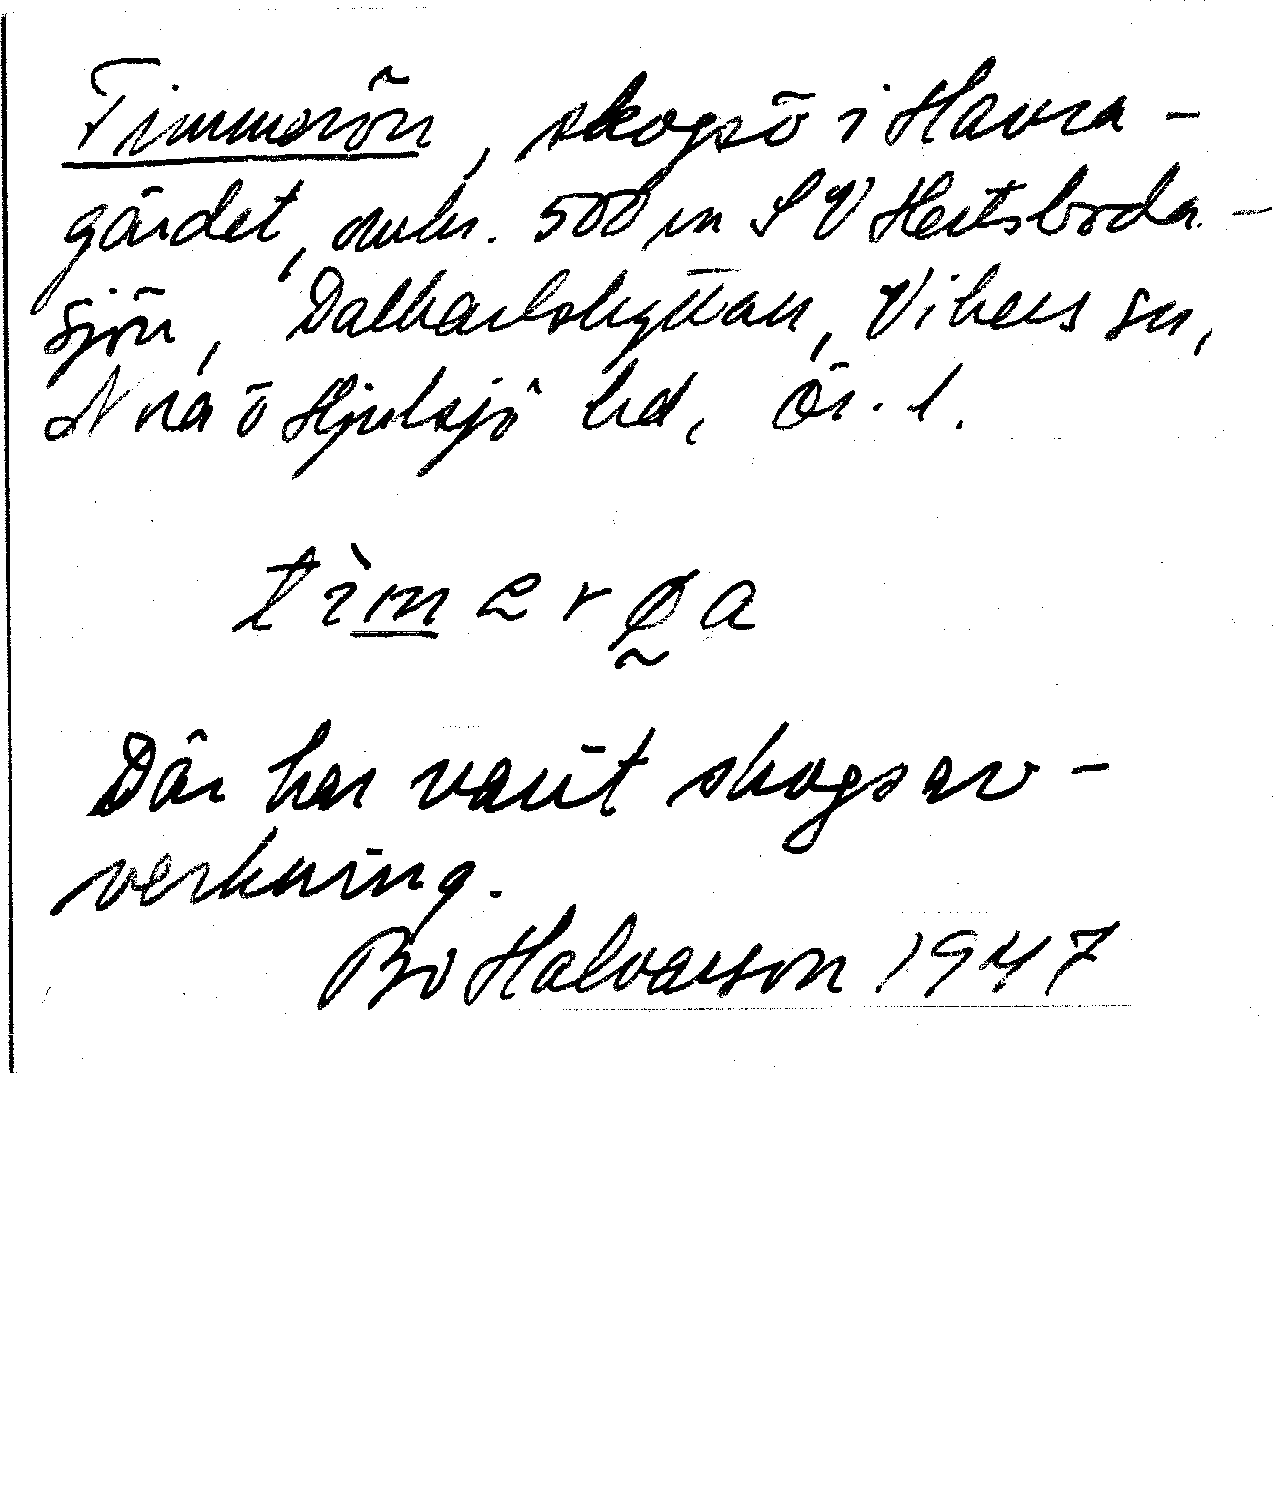 Timmerön, skogsö i Havra-
gärdet, omkr. 500 m SV Hertsboda-
sjön, Dalkarlshyttan, Vikers sn,
Nora o Hjulsjö hd, Ör. l.
tìmerøa
Där har varit skogsav-
verkning.
Bo Halvarson 1947